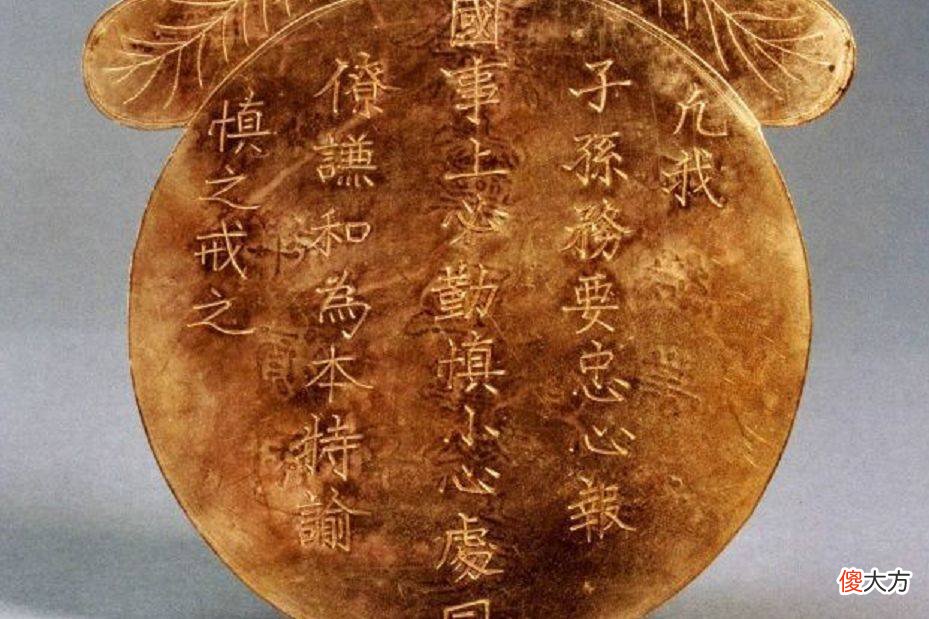 凢我
子孫務要忠心報
國事上必勤慎小心處同
僚謙和為本特諭
慎之戒之
傻大方